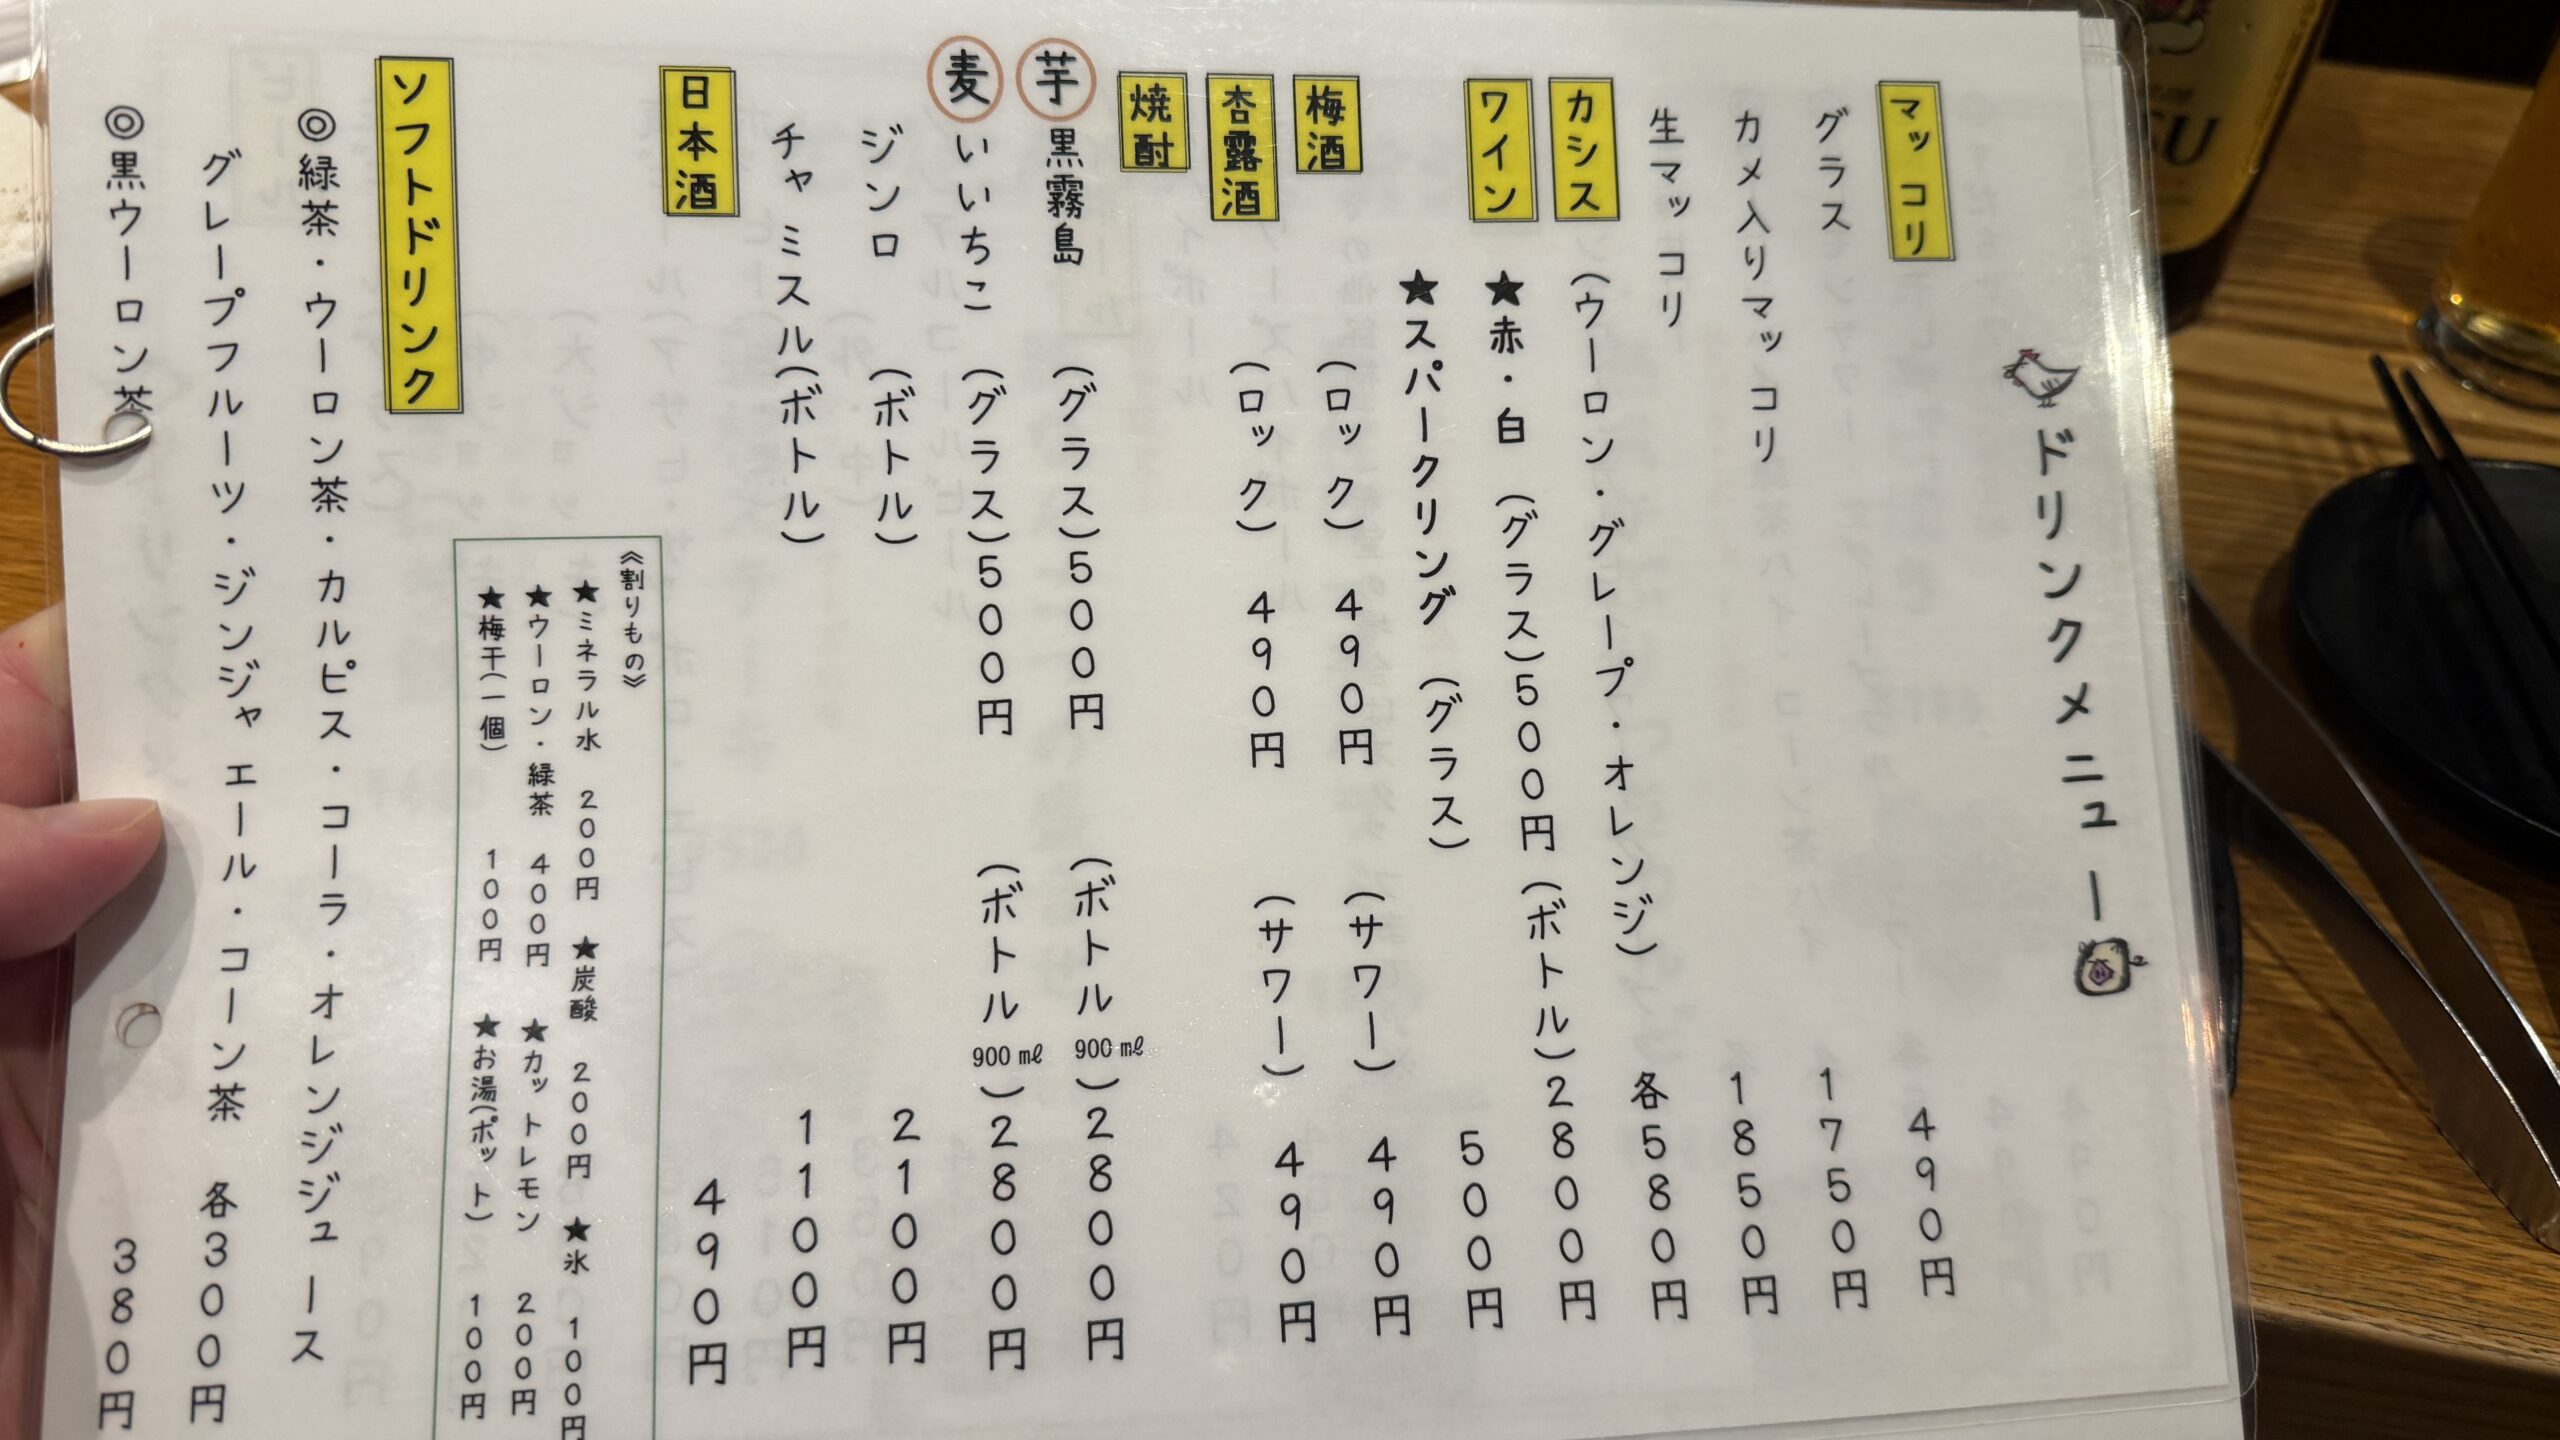 ドリンクメニュー
マッコリ
グラス 490円
カメ入りマッコリ 1750円
生マッコリ 1850円
カシス (ウーロン・グレープ・オレンジ) 各580円
ワイン ★赤・白 (グラス)500円 (ボトル)2800円
★スパークリング (グラス) 500円
梅酒 (ロック) 490円 (サワー) 490円
杏露酒 (ロック) 490円 (サワー) 490円
焼酎
芋 黒霧島 (グラス)500円 (ボトル 900㎖)2800円
麦 いいちこ (グラス)500円 (ボトル 900㎖)2800円
ジンロ (ボトル) 2100円
チャミスル(ボトル) 1100円
日本酒 490円
《割りもの》
★ミネラル水 200円 ★炭酸 200円 ★氷 100円
★ウーロン・緑茶 400円 ★カットレモン 200円
★梅干(一個) 100円 ★お湯(ポット) 100円
ソフトドリンク
◎緑茶・ウーロン茶・カルピス・コーラ・オレンジジュース
グレープフルーツ・ジンジャエール・コーン茶 各300円
◎黒ウーロン茶 380円